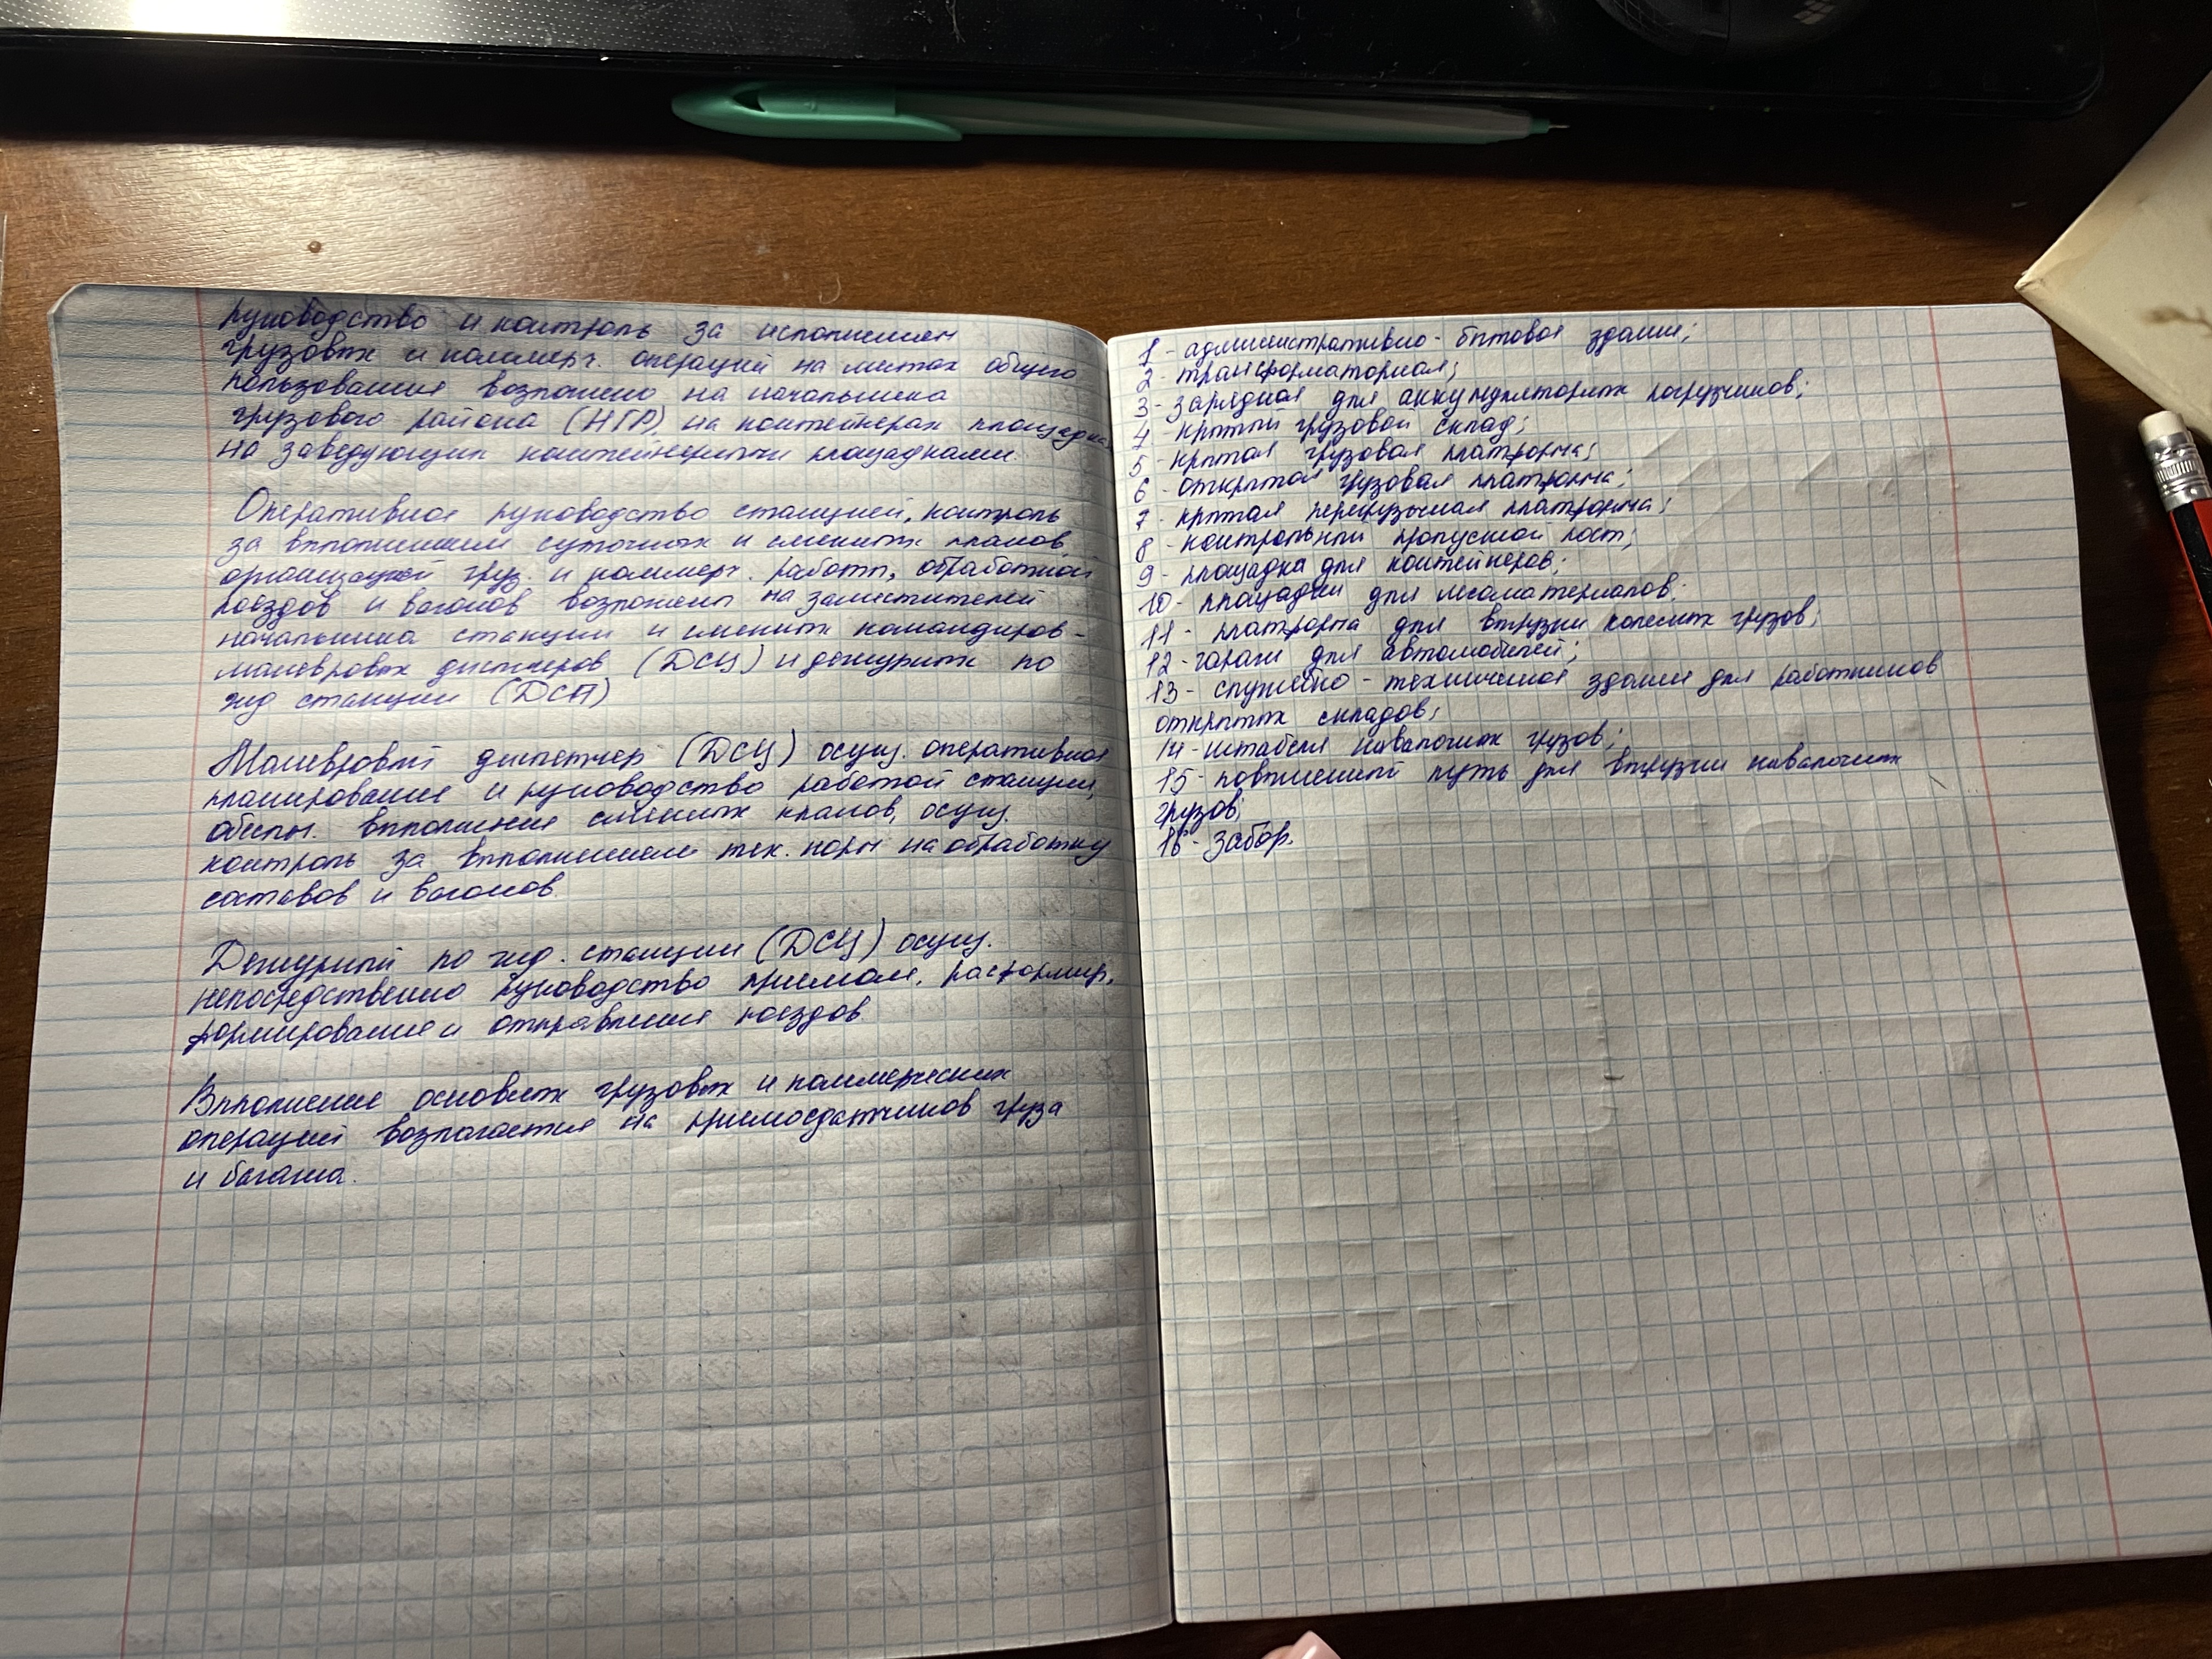 Руководство и контроль за исполнением
грузовых и коммерч. операций на местах общего
пользования возложено на начальника
грузового района (НГР), на контейнерах площадках
на заведующих контейнерными площадками.
Оперативное руководство станцией, контроль
за выполнением суточных и сменных планов,
организацией груз. и коммерч. работы, обработкой
поездов и вагонов возложены на заместителей
начальника станции и сменных командиров -
маневровых диспетчеров (ДСЦ) и дежурных по
жд станции (ДСП)
Маневровый диспетчер (ДСЦ) осущ. оперативное
планирование и руководство работой станции,
обеспеч. выполнение сменных планов, осущ.
контроль за выполнением тех. норм на обработку
составов и вагонов.
Дежурный по жд. станции (ДСЦ) осущ.
непосредственно руководство приемом, расформир,
формирование и отправление поездов
Выполнение основных грузовых и коммерческих
операций возлагается на приемосдатчиков груза
и багажа.
1 - административно - бытовое здание;
2 - трансформаторная;
3 - зарядная для аккумуляторных погрузчиков;
4 - крытый грузовой склад;
5 - крытая грузовая платформа;
6 - открытая грузовая платформа;
7 - крытая перегрузочная платформа;
8 - контрольный пропускной пост;
9 - площадка для контейнеров;
10 - площадки для лесоматериалов;
11 - платформа для выгрузки колесных грузов;
12 - гаражи для автомобилей;
13 - служебно - техническое здание для работников
открытых складов;
14 - штабеля навалочных грузов;
15 - повышенный путь для выгрузки навалочных
грузов;
16 - забор.